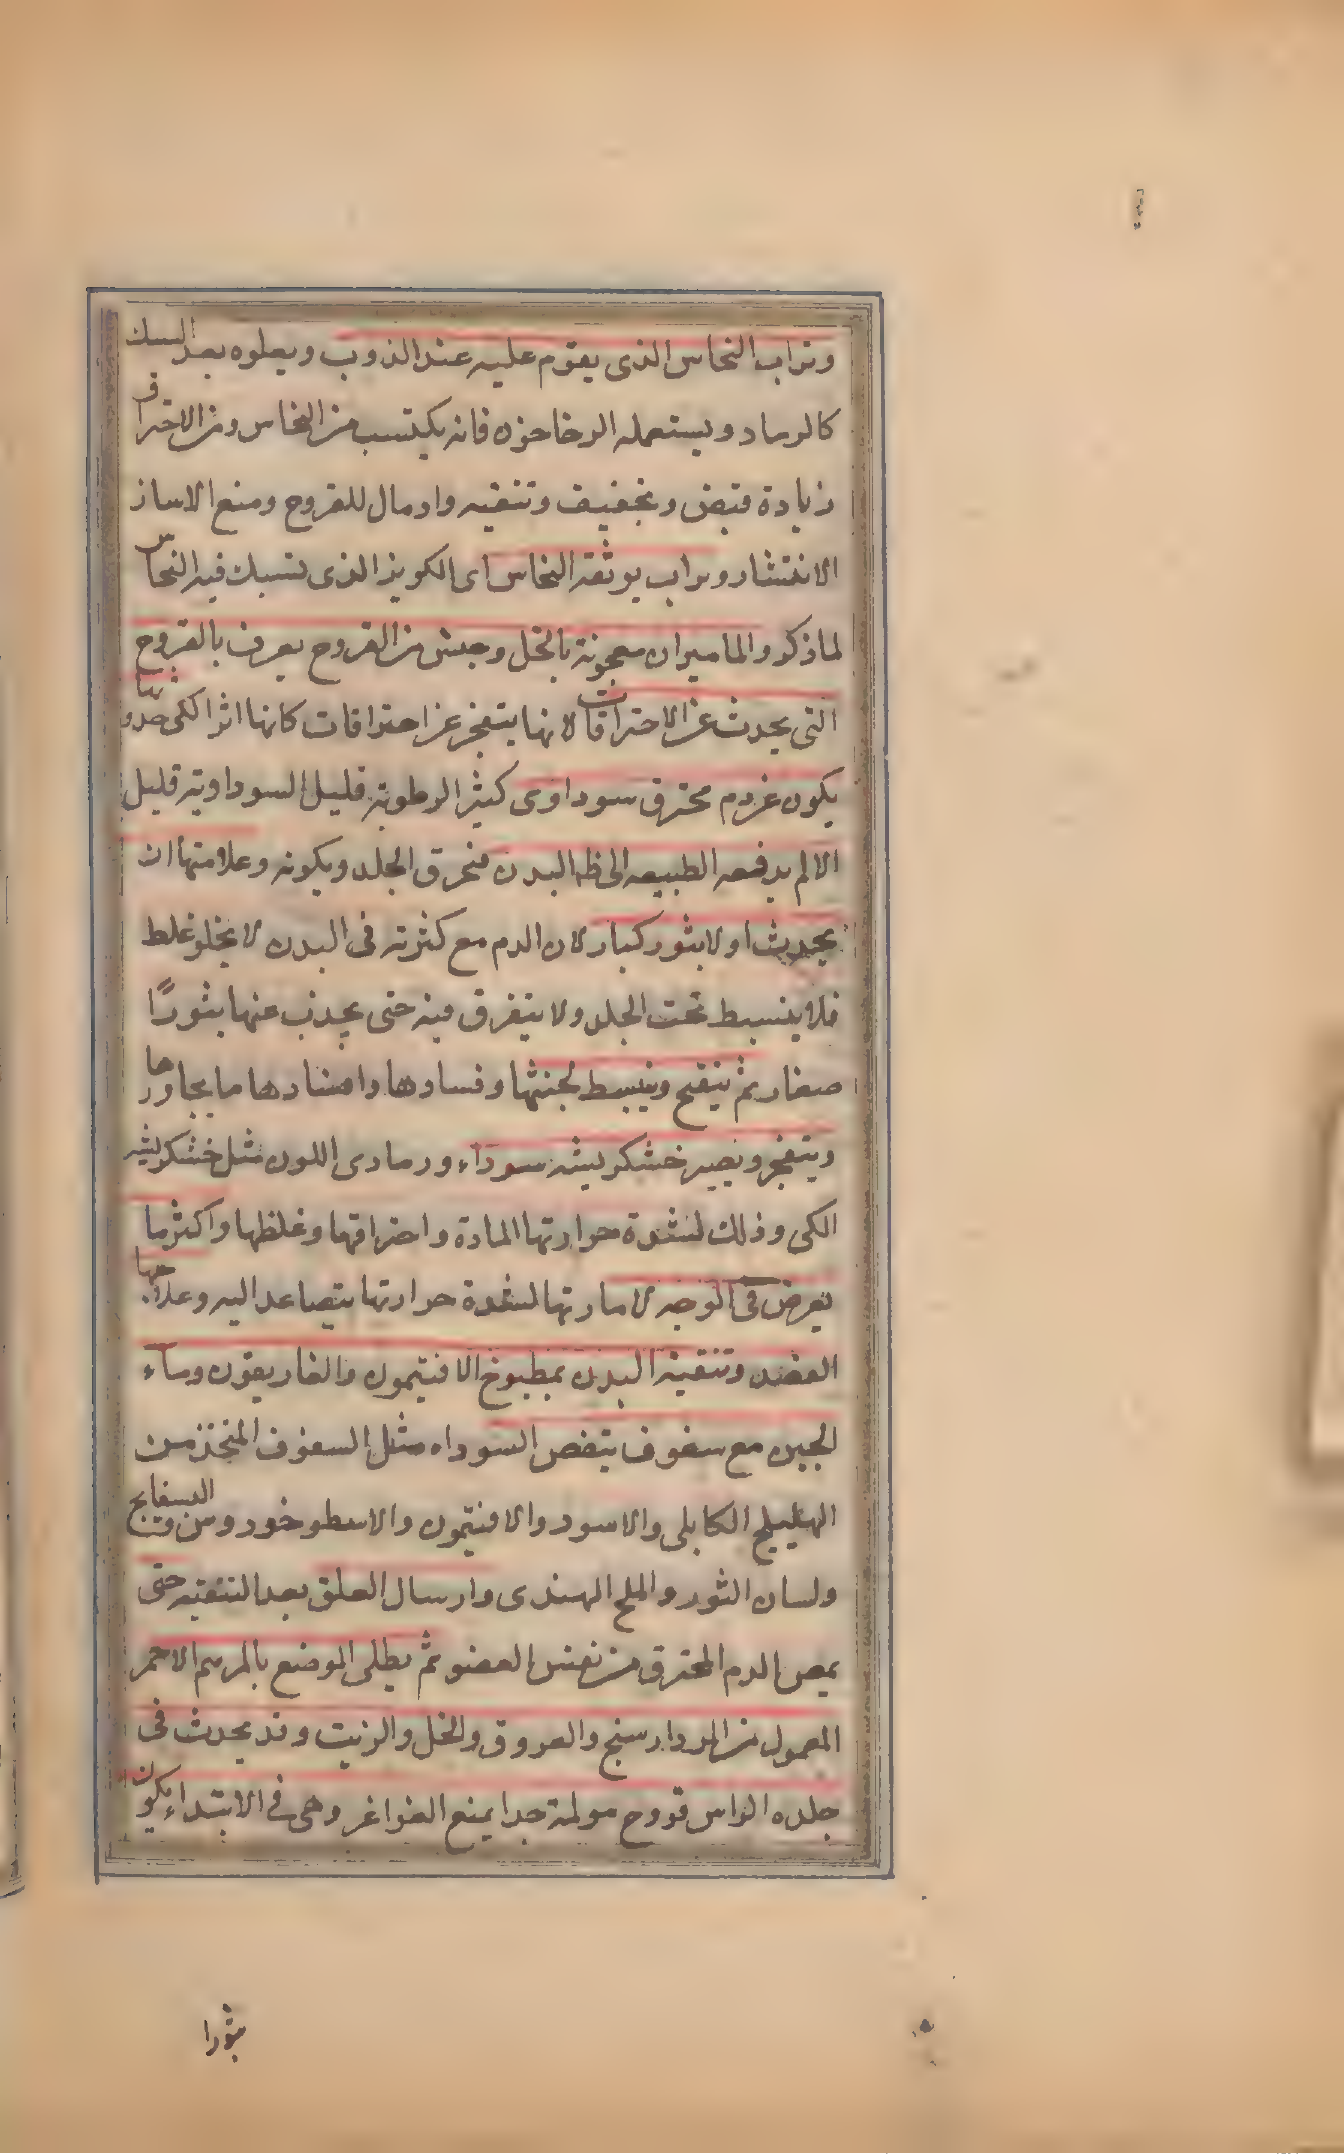 وتراب النحاس الذى يقوم عليه عند الذوب ويعلوه بعد السبك
كالرماد ويستعمله الرخاخزه فانه يكتسب من النحاس ومن الاحتراق
زيادة قبض وتجفيف وتنقيه وادمال للقروح ومنع الاساز
الانتشار وتراب بوثقة النحاس اى الكويز الذى تسبك فيه النحاس
لما ذكر والماميران معجونة بالخل وجنس من القروح يعرف بالقروح
التى يحدث عن الاحتراقات لانها يتفجر عن احتراقات كانها اثر الكى
يكون عن دم محترق سوداوى كثير الرطوبة قليل السوداوية قليل
الالم يدفعه الطبيعه الى ظاهر البدن فيحرق الجلد ويكونه وعلامتها ان
يحدث اولا بثور كبار لان الدم مع كثرته فى البدن لا يخلو غلط
فلا ينبسط تحت الجلد ولا يتفرق فيه حتى يحدث عنها بثورًا
صغار ثم يتقيح وينبسط لخبثها وفسادها وافسادها ما يجاورها
ويتفجر ويصير خشكريشه سوداء ورمادى اللون مثل خشكريشه
الكى وذلك لشدة حرارتها المادة واحتراقها وغلظها واكثر ما
يعرض فى الوجه لا مادتها لشدة حرارتها يتصاعد اليه وعلاجها
الفصد وتنقية البدن بمطبوخ الافتيمون والغاريقون وماء
الجبن مع سفوف ينفض السوداء مثل السفوف المتخذ من
الهليلج الكابلى والاسود والافتيمون والاسطوخودوس والبسفايج
ولسان الثور والملح الهندى وارسال العلق بعد التنقيه حتى
يمص الدم المحترق من نفس العضو ثم يطلى الموضع بالمرهم الاحمر
المعمول من المردارسنج والعروق والخل والزيت وقد يحدث فى
جلده الراس قروح مولمة جدا يمنع الفراغر وهى فى الابتداء يكون
بثورا